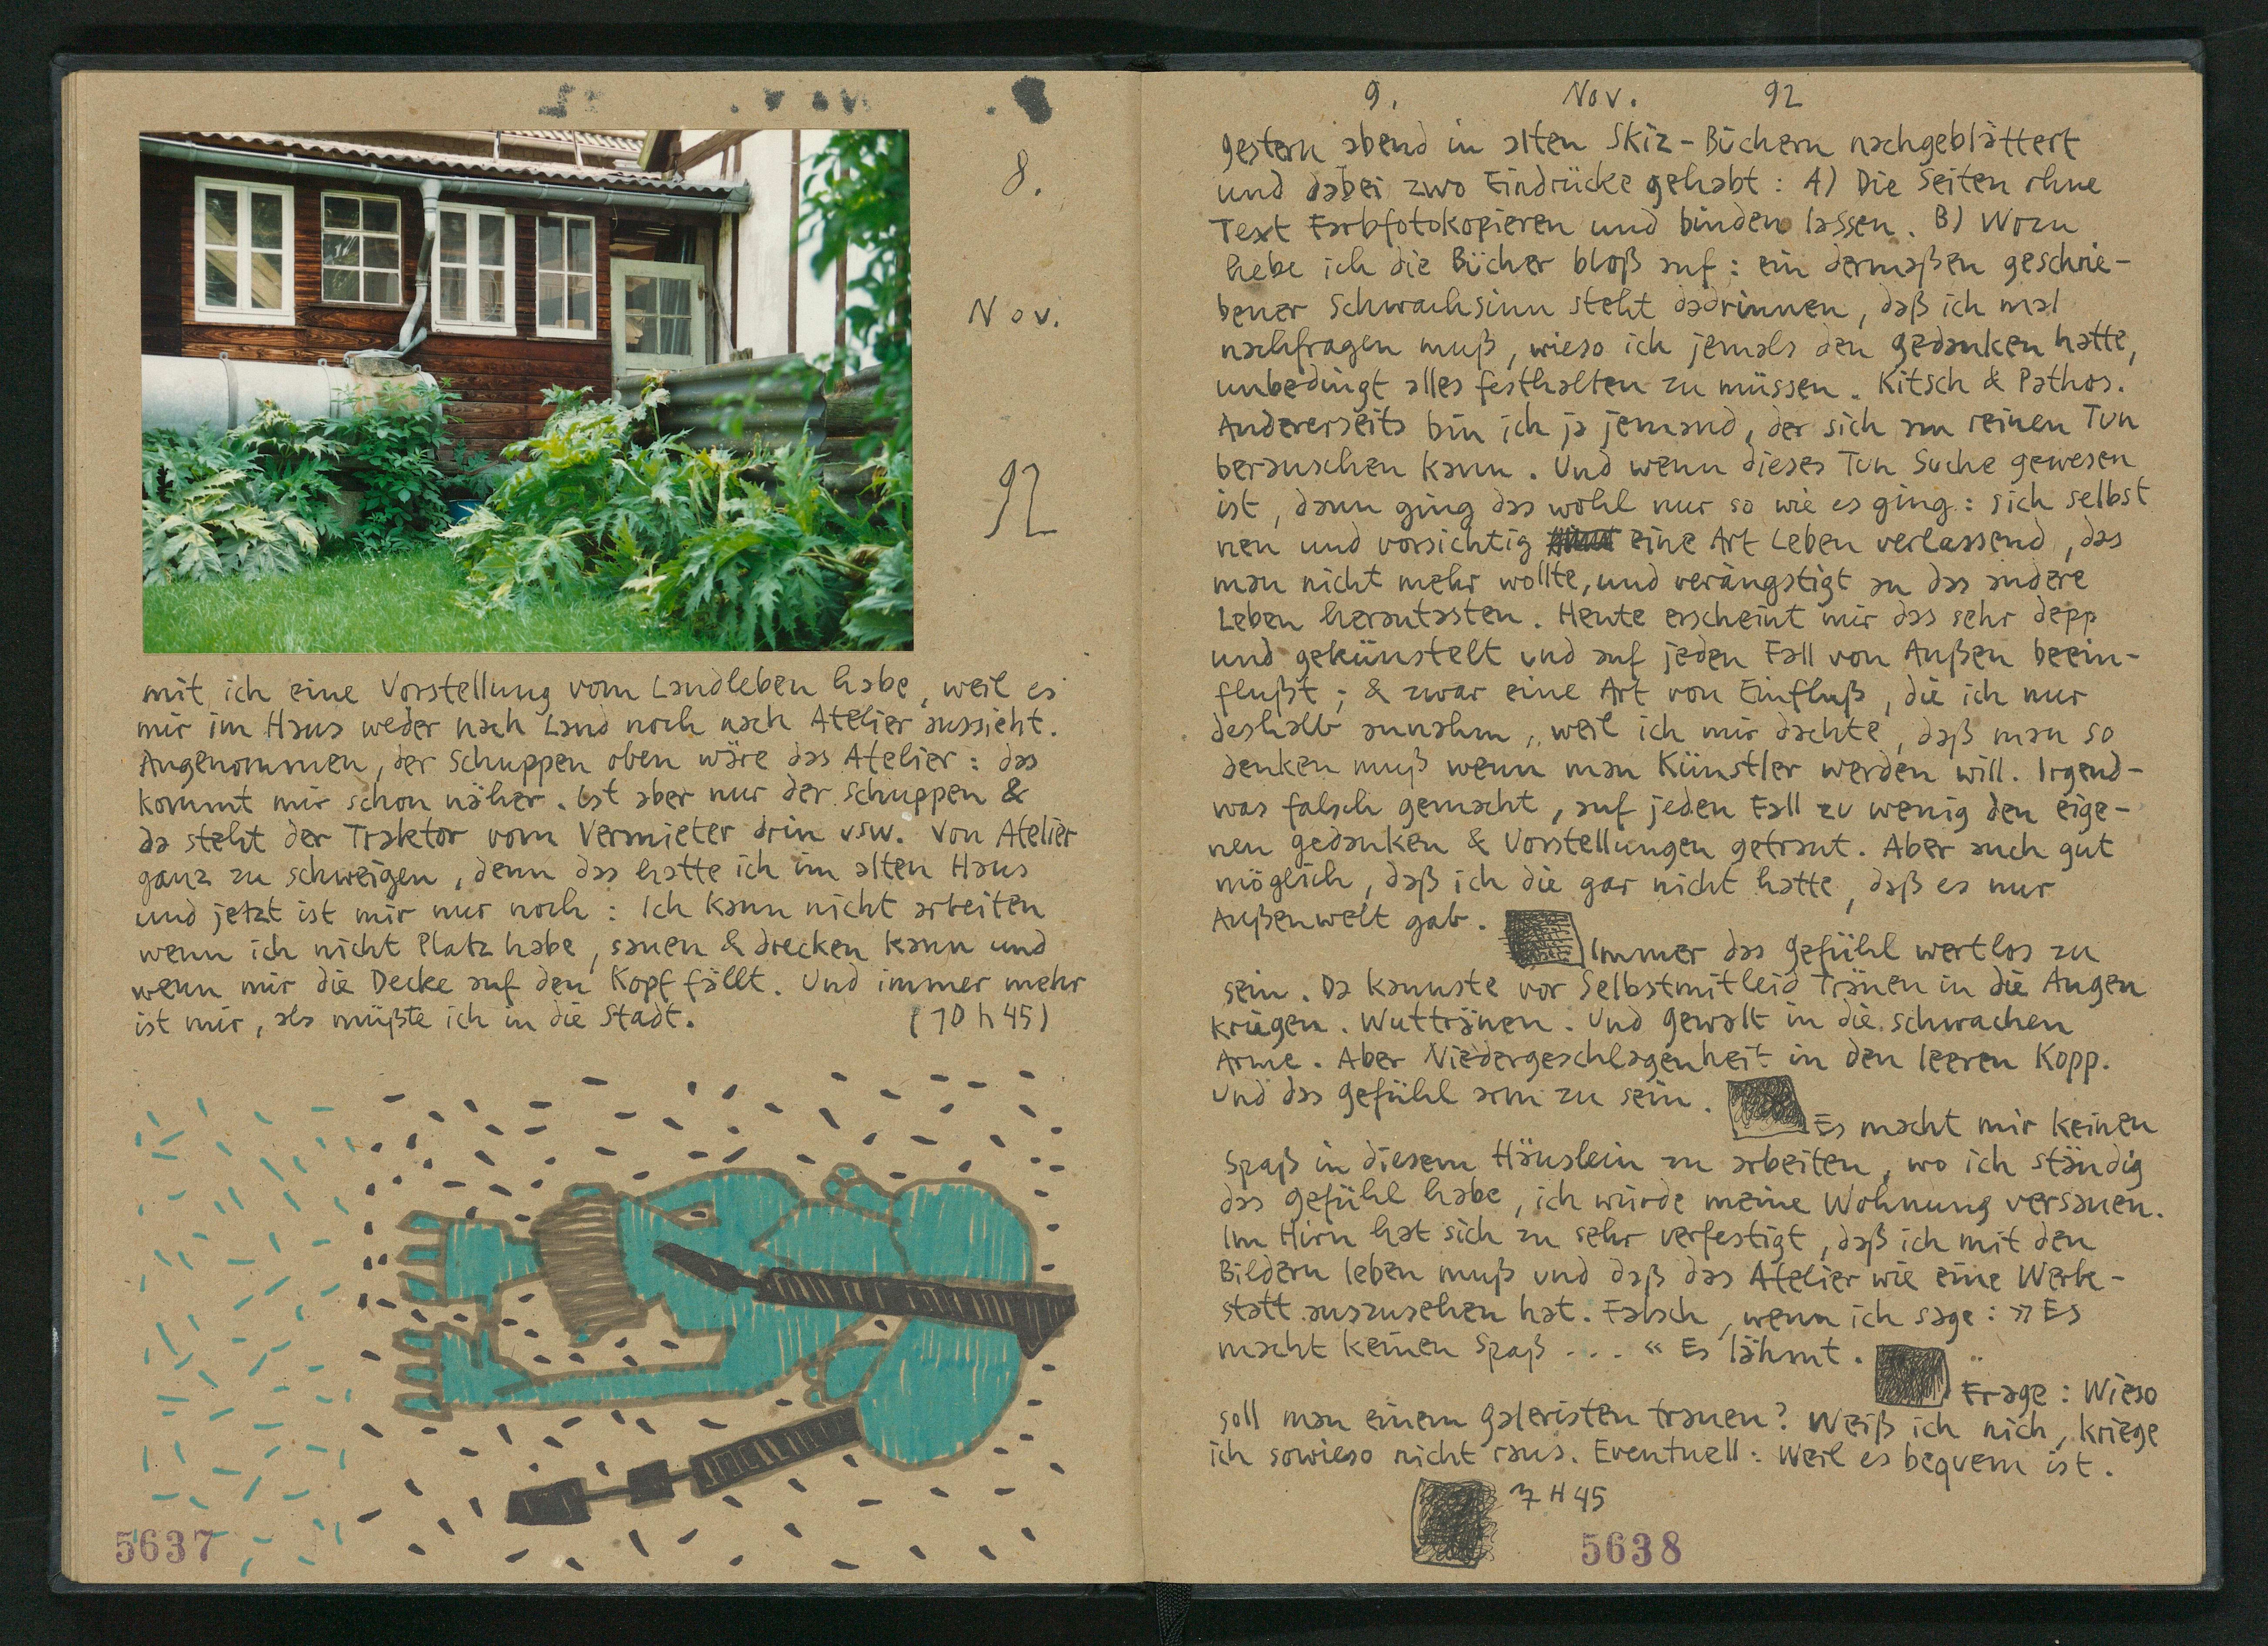 8.
Nov.
92
mit ich eine Vorstellung vom Landleben habe, weil es
mir im Haus weder nach Land noch nach Atelier aussieht.
Angenommen, der Schuppen oben wäre das Atelier: das
kommt mir schon näher. Ist aber nur der Schuppen &
da steht der Traktor vom Vermieter drin usw. Von Atelier
ganz zu schweigen, denn das hatte ich im alten Haus
und jetzt ist mir nur noch: Ich kann nicht arbeiten
wenn ich nicht Platz habe, sauen & drecken kann und
wenn mir die Decke auf den Kopf fällt. Und immer mehr
ist mir, als müßte ich in die Stadt. (10 h 45)
5637
9. Nov. 92
gestern abend in alten Skiz-Büchern nachgeblättert
und dabei zwo Eindrücke gehabt: A) Die Seiten ohne
Text Farbfotokopieren und binden lassen. B) Wozu
hebe ich die Bücher bloß auf: ein dermaßen geschrie-
bener Schwachsinn steht dadrinnen, daß ich mal
nachfragen muß, wieso ich jemals den Gedanken hatte,
unbedingt alles festhalten zu müssen. Kitsch & Pathos.
Andererseits bin ich ja jemand, der sich am reinen Tun
berauschen kann. Und wenn dieses Tun Suche gewesen
ist, dann ging das wohl nur so wie es ging: sich selbst
neu und vorsichtig eine Art Leben verlassend, das
man nicht mehr wollte, und verängstigt an das andere
Leben herantasten. Heute erscheint mir das sehr depp
und gekünstelt und auf jeden Fall von Außen beein-
flußt; & zwar eine Art von Einfluß, die ich nur
deshalb annahm, weil ich mir dachte, daß man so
denken muß wenn man Künstler werden will. Irgend-
was falsch gemacht, auf jeden Fall zu wenig den eige-
nen Gedanken & Vorstellungen getraut. Aber auch gut
möglich, daß ich die gar nicht hatte, daß es nur
Außenwelt gab.
Immer das Gefühl wertlos zu
sein. Da kannste vor Selbstmitleid Tränen in die Augen
kriegen. Wuttränen. Und Gewalt in die schwachen
Arme. Aber Niedergeschlagenheit in den leeren Kopp.
Und das Gefühl arm zu sein.
Es macht mir keinen
Spaß in diesem Häuslein zu arbeiten, wo ich ständig
das Gefühl habe, ich würde meine Wohnung versauen.
Im Hirn hat sich zu sehr verfestigt, daß ich mit den
Bildern leben muß und daß das Atelier wie eine Werk-
statt auszusehen hat. Falsch, wenn ich sage: »Es
macht keinen Spaß ... « Es lähmt.
Frage: Wieso
soll man einem Galeristen trauen? Weiß ich nich, kriege
ich sowieso nicht raus. Eventuell: Weil es bequem ist.
7 H 45
5638